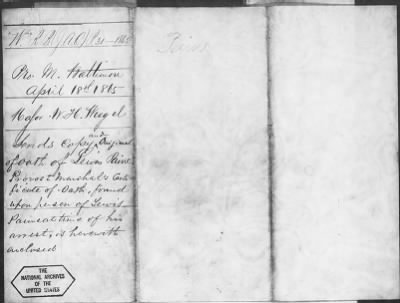 Pro. M. Baltimore
April 18th 1865
Major W. H. Wiegel
Sends Copy and Original
of oath of Lewis Paine
Provost Marshal's Certi
ficate of Oath, found
upon person of Lewis
Paine at time of his
arrest, is herewith
enclosed
Paine
THE
NATIONAL ARCHIVES
OF THE
UNITED STATES